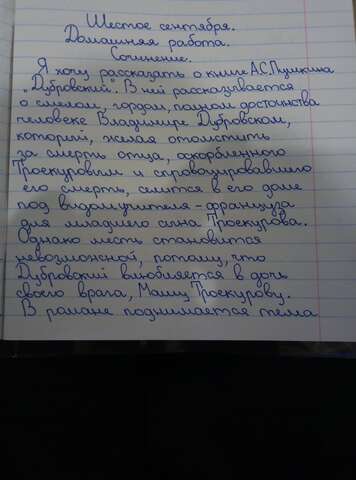 Шестое сентября.
Домашняя работа.
Сочинение.
Я хочу рассказать о книге А.С.Пушкина
„Дубровский". В ней рассказывается
о смелом, гордом, полном достоинства
человеке Владимире Дубровском,
который, желая отомстить
за смерть отца, оскорбленного
Троекуровым и спровоцировавшего
его смерть, селится в его доме
под видом учителя-француза
для младшего сына Троекурова.
Однако месть становится
невозможной, потому, что
Дубровский влюбляется в дочь
своего врага, Машу Троекурову.
В романе поднимается тема